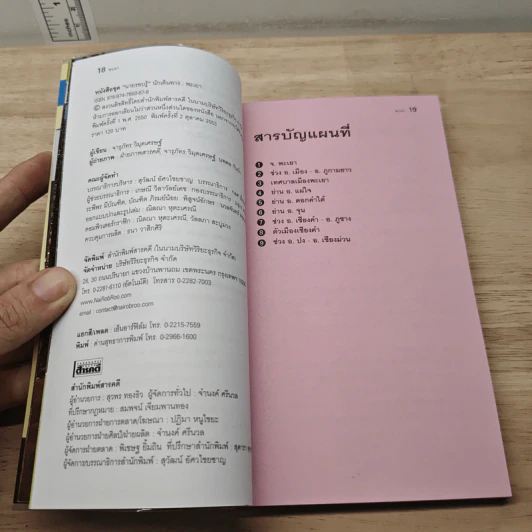 18 พะเยา
หนังสือชุด "นายรอบรู้" นักเดินทาง : พะเยา
ISBN
© สงวนลิขสิทธิ์โดยสำนักพิมพ์สารคดี ในนามบริษัทวิริยะธุรกิจ
พิมพ์ครั้งที่ 1 พ.ศ. 2550 พิมพ์ครั้งที่ 2 ตุลาคม 2553
ราคา 120 บาท
ผู้เขียน : จารุภัทร วิมุตเศรษฐ์
ผู้ถ่ายภาพ : ฝ่ายภาพสารคดี, จารุภัทร วิมุตเศรษฐ์,
คณะผู้จัดทำ
บรรณาธิการบริหาร : สุวัฒน์ อัศวไชยชาญ บรรณาธิการ :
ควบคุมการผลิต : ธนา วาสิกศิริ
จัดพิมพ์ สำนักพิมพ์สารคดี (ในนามบริษัทวิริยะธุรกิจ จำกัด)
จัดจำหน่าย บริษัทวิริยะธุรกิจ จำกัด
28, 30 ถนนปรินายก แขวงบ้านพานถม เขตพระนคร กรุงเทพฯ
โทร. 0-2281-6110 (อัตโนมัติ) โทรสาร 0-2282-7003
www.NaiRobRoo.com
email : contact@nairobroo.com
แยกสี/เพลต : เอ็นอาร์ฟิล์ม โทร. 0-2215-7559
พิมพ์ : ด่านสุทธาการพิมพ์ โทร. 0-2966-1600
สารคดี
สำนักพิมพ์สารคดี
ผู้อำนวยการ : สุวพร ทองธิว ผู้จัดการทั่วไป : จำนงค์ ศรีนวล
ที่ปรึกษากฎหมาย : สมพจน์ เจียมพานทอง
ผู้อำนวยการฝ่ายการตลาด/โฆษณา : ปฏิมา หนูไชยะ
ผู้อำนวยการฝ่ายศิลป์/ฝ่ายผลิต : จำนงค์ ศรีนวล
ผู้จัดการฝ่ายตลาด : พิเชษฐ ยิ้มถิน ที่ปรึกษาสำนักพิมพ์ :
ผู้จัดการ/บรรณาธิการสำนักพิมพ์ : สุวัฒน์ อัศวไชยชาญ
พะเยา 19
สารบัญแผนที่
1 จ. พะเยา
2 ช่วง อ. เมือง - อ. ภูกามยาว
3 เทศบาลเมืองพะเยา
4 ย่าน อ. แม่ใจ
5 ย่าน อ. ดอกคำใต้
6 ย่าน อ. จุน
7 ช่วง อ. เชียงคำ - อ. ภูซาง
8 ตัวเมืองเชียงคำ
9 ช่วง อ. ปง - อ. เชียงม่วน